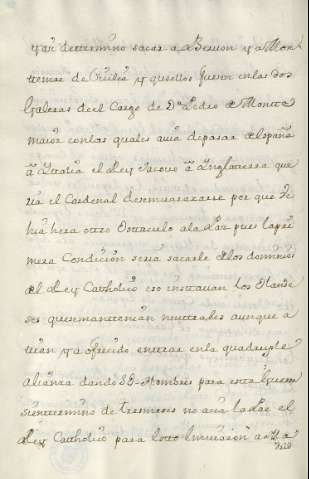 y asi determino sacar a Bervon y a Mon
temar de Sicilia y que ellos fuesen en las dos
Galeras de el Cargo de Dn Pedro de Monte
maior con las quales avia de pasar de españa
a Ytalia el Rey Jacovo a Ynglaterra que
ria el Cardenal desembarazarse por que te
nia hera otro Obstaculo a la Paz pues la pri
mera Condicion seria sacarle de los dominios
del Rey Catholico eso instavan los Olande
ses que se mantenian neutrales aunque a
vian ya ofrecido entrar en la quadruple
alianza dando Hombres para esta Guerra
si en termino de tres meses no avia la Paz el
Rey Catholico para